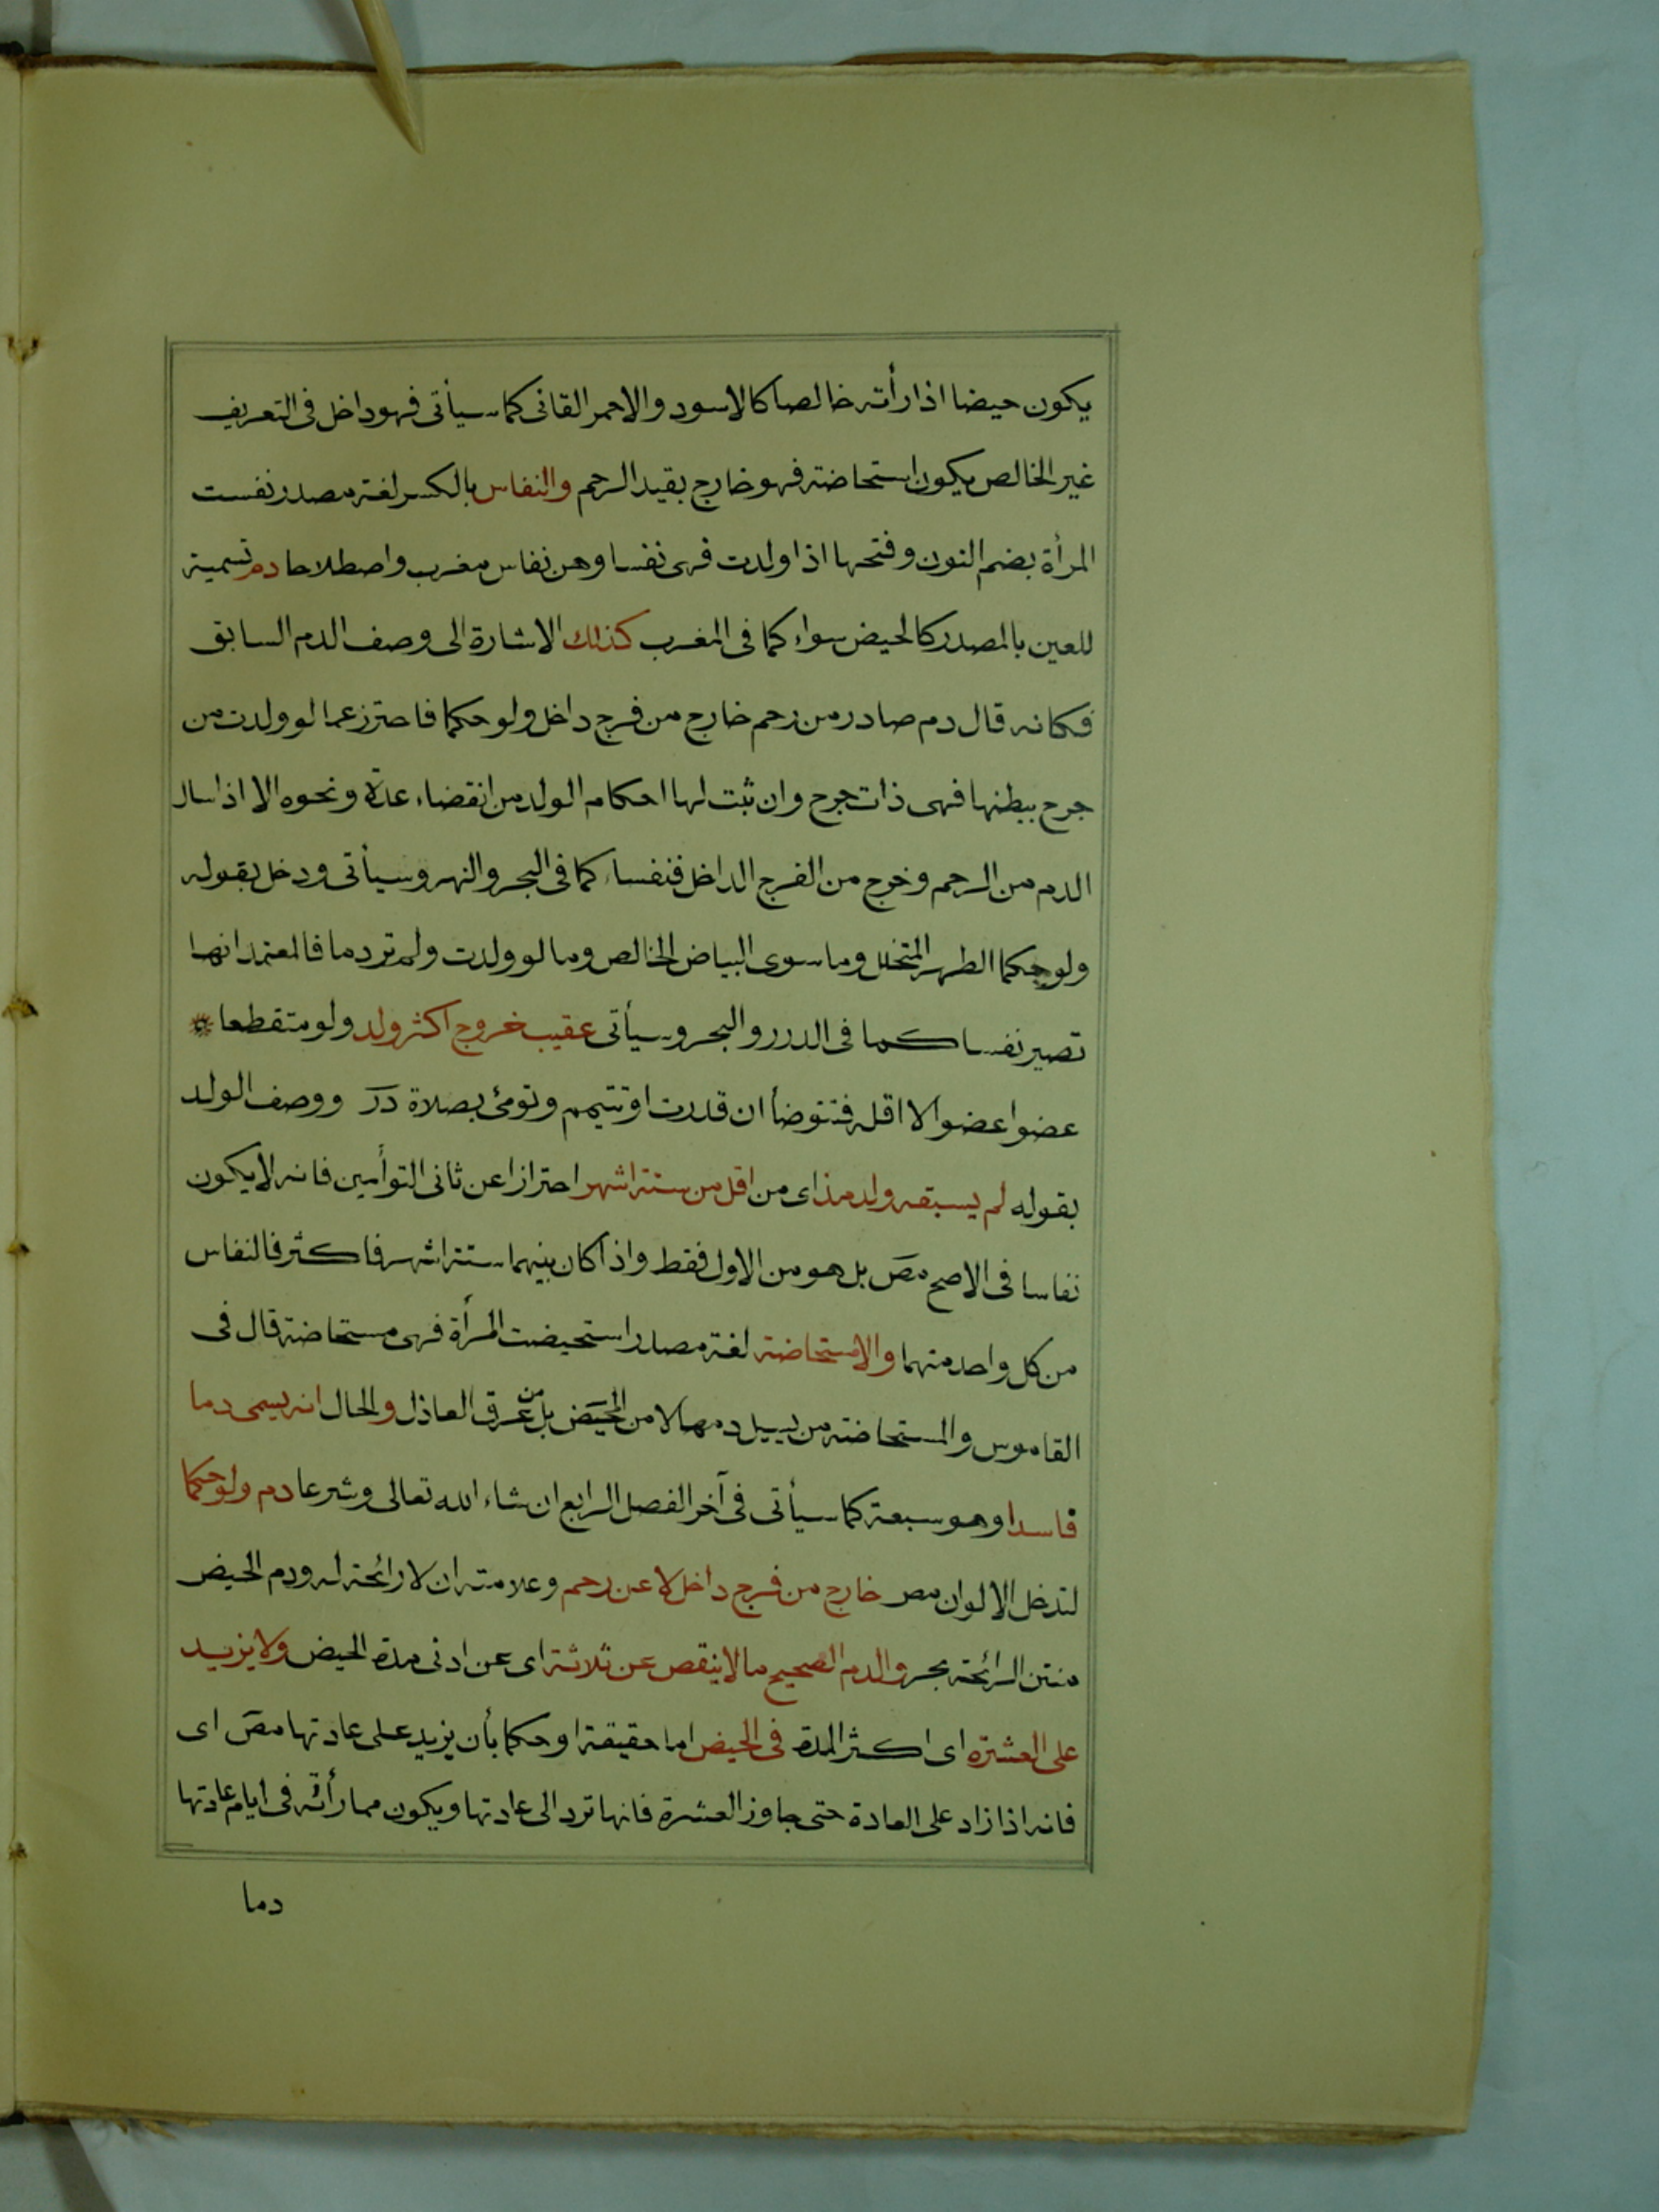 يكون حيضا اذا رأته خالصا كالاسود والاحمر القانى كما سيأتى فهو داخل فى التعريف
غير الخالص يكون استحاضة فهو خارج بقيد الرحم والنفاس بالكسر لغة مصدر نفست
المرأة بضم النون وفتحها اذا ولدت فهى نفسا وهن نفاس مغرب واصطلاحا دم تسمية
للعين بالمصدر كالحيض سواء كما فى المغرب كذلك الاشارة الى وصف الدم السابق
فكانه قال دم صادر من رحم خارج من فرج داخل ولو حكما فاحترز عما لو ولدت من
جرح ببطنها فهى ذات جرح وان ثبت لها احكام الولد من انقضاء عدة ونحوه الا اذا سال
الدم من الرحم وخرج من الفرج الداخل فنفساء كما فى البحر والنهر وسيأتى ودخل بقوله
ولو حكما الطهر المتخلل وما سوى البياض الخالص وما لو ولدت ولم تر دما فالمعتمد انها
تصير نفسا كما فى الدرر والبحر وسيأتى عقيب خروج اكثر ولد ولو متقطعا
عضوا عضوا لا اقله فتتوضأ ان قدرت او تتيمم وتومئ بصلاة در ووصف الولد
بقوله لم يسبقه ولد مذ اى من اقل من ستة اشهر احترازا عن ثانى التوأمين فانه لا يكون
نفاسا فى الاصح مص بل هو من الاول فقط واذا كان بينهما ستة اشهر فاكثر فالنفاس
من كل واحد منهما والاستحاضة لغة مصدر استحيضت المرأة فهى مستحاضة قال فى
القاموس والمستحاضة من يسيل دمها لا من الحيض بل من عرق العاذل والحال انه يسمى دما
فاسدا وهو سبعة كما سيأتى فى آخر الفصل الرابع ان شاء الله تعالى وشرعا دم ولو حكما
لتدخل الالوان مص خارج من فرج داخل لا عن رحم وعلامته ان لا رائحة له ودم الحيض
منتن الرائحة بحر والدم الصحيح ما لا ينقص عن ثلاثة اى عن ادنى مدة الحيض ولا يزيد
على العشرة اى اكثر المدة فى الحيض اما حقيقة او حكما بأن يزيد على عادتها مص اى
فانه اذا زاد على العادة حتى جاوز العشرة فانها ترد الى عادتها ويكون مما رأته فى ايام عادتها
دما